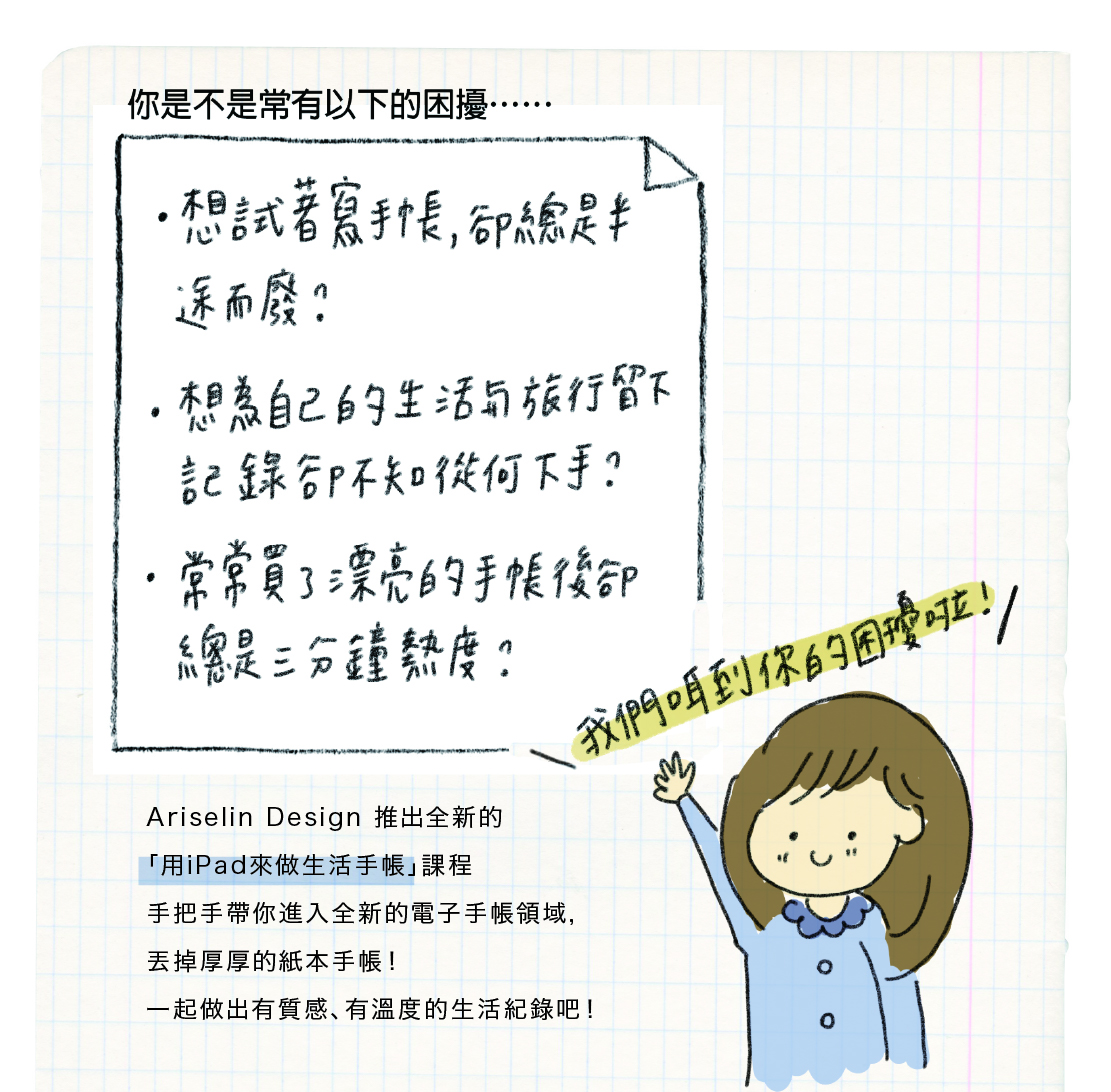 你是不是常有以下的困擾⋯⋯
・想試著寫手帳,卻總是半
途而廢?
・想為自己的生活與旅行留下
記錄卻不知從何下手?
・常常買了漂亮的手帳後卻
總是三分鐘熱度?
我們咡到你的困擾啦!
Ariselin Design 推出全新的
「用iPad來做生活手帳」課程
手把手帶你進入全新的電子手帳領域,
丟掉厚厚的紙本手帳!
一起做出有質感、有溫度的生活紀錄吧!